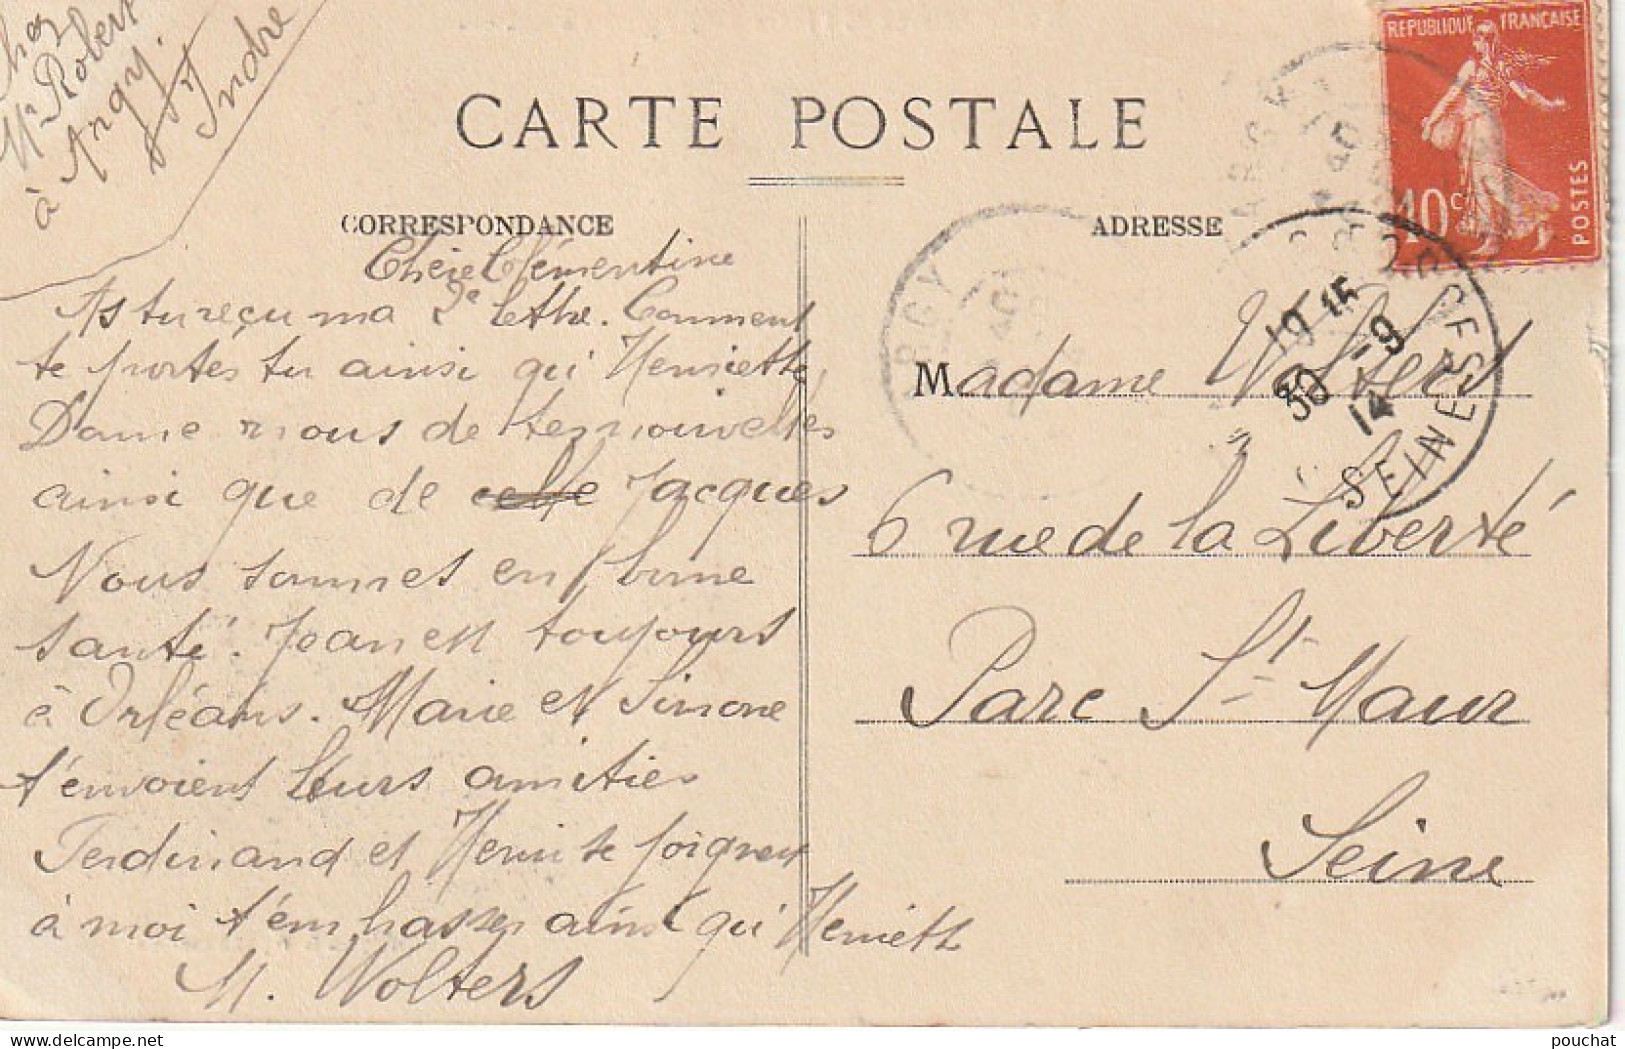 Chez
Mr Robert
à Argy.
Indre
CARTE POSTALE
CORRESPONDANCE
ADRESSE
REPUBLIQUE FRANÇAISE
10c
POSTES
Chère Clémentine
As tu reçu ma 2e lettre. Comment
te portes tu ainsi qui Henriette
Dame nous de tes nouvelles
ainsi que de celle Jacques
Nous sommes en bonne
santé. Jean est toujours
à Orléans. Marie et Simone
t'envoient leurs amitiés
Ferdinand et Henri se joignent
à moi t'embrasser ainsi qui Henriette
M. Wolters
ARGY
19 15
30 - 9
14
SEINE
Madame Wolters
6 rue de la Liberté
Parc St Maur
Seine
delcampe.net
pouchat